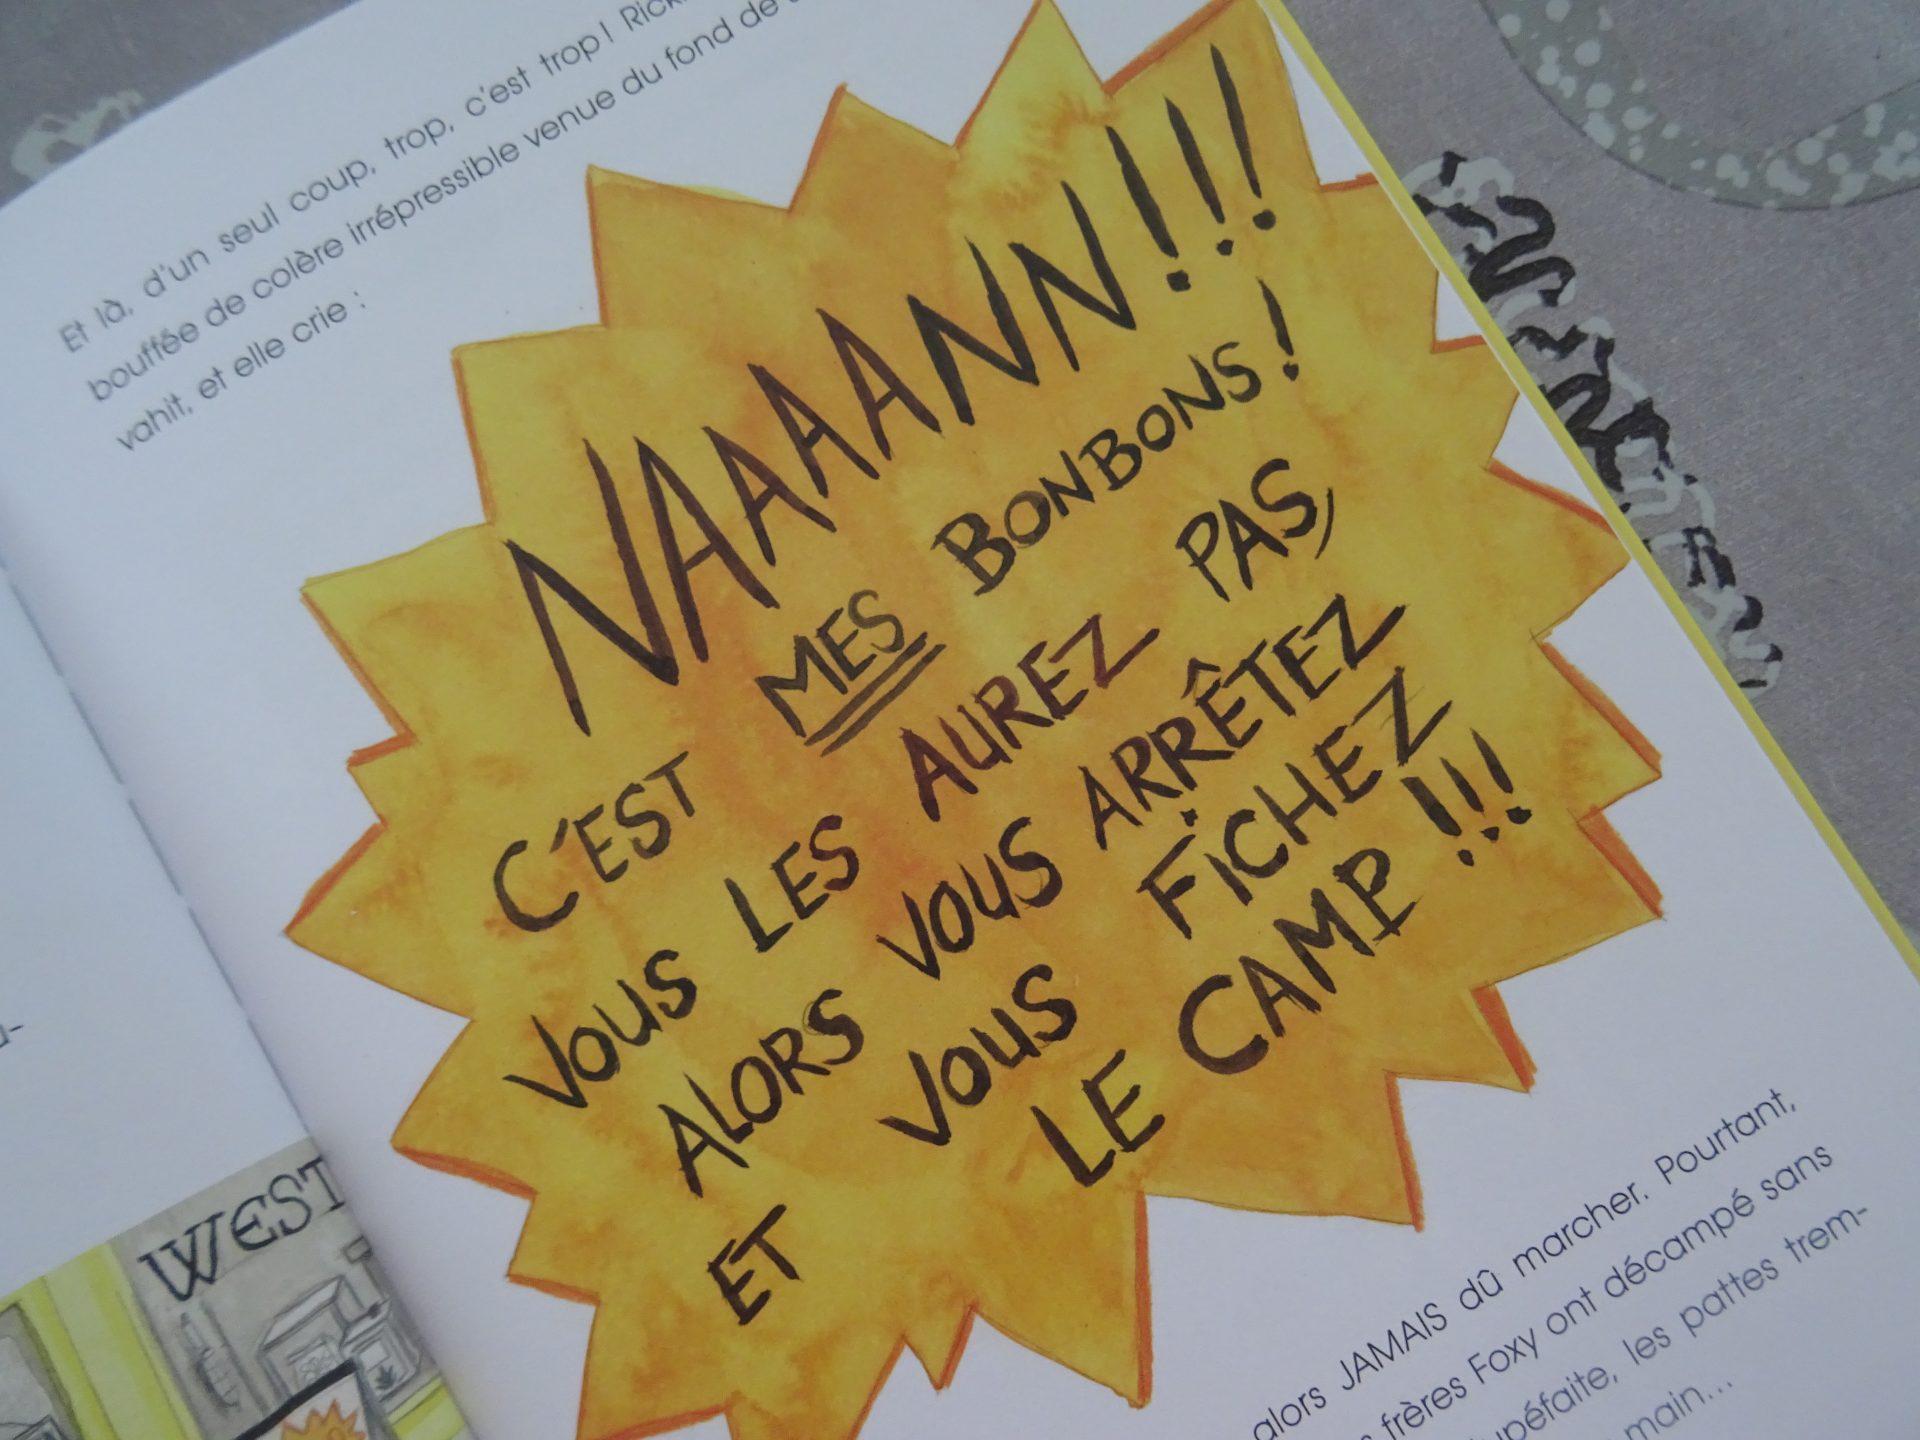 Et là, d'un seul coup, trop, c'est trop!
bouffée de colère irrépressible venue du fond de
vahit, et elle crie :
NAAAANN!!!
C'EST MES BONBONS!
VOUS LES AUREZ PAS,
ALORS VOUS ARRÊTEZ
ET VOUS FICHEZ
LE CAMP!!!
WEST
alors JAMAIS dû marcher. Pourtant,
frères Foxy ont décampé sans
les pattes trem-
main...